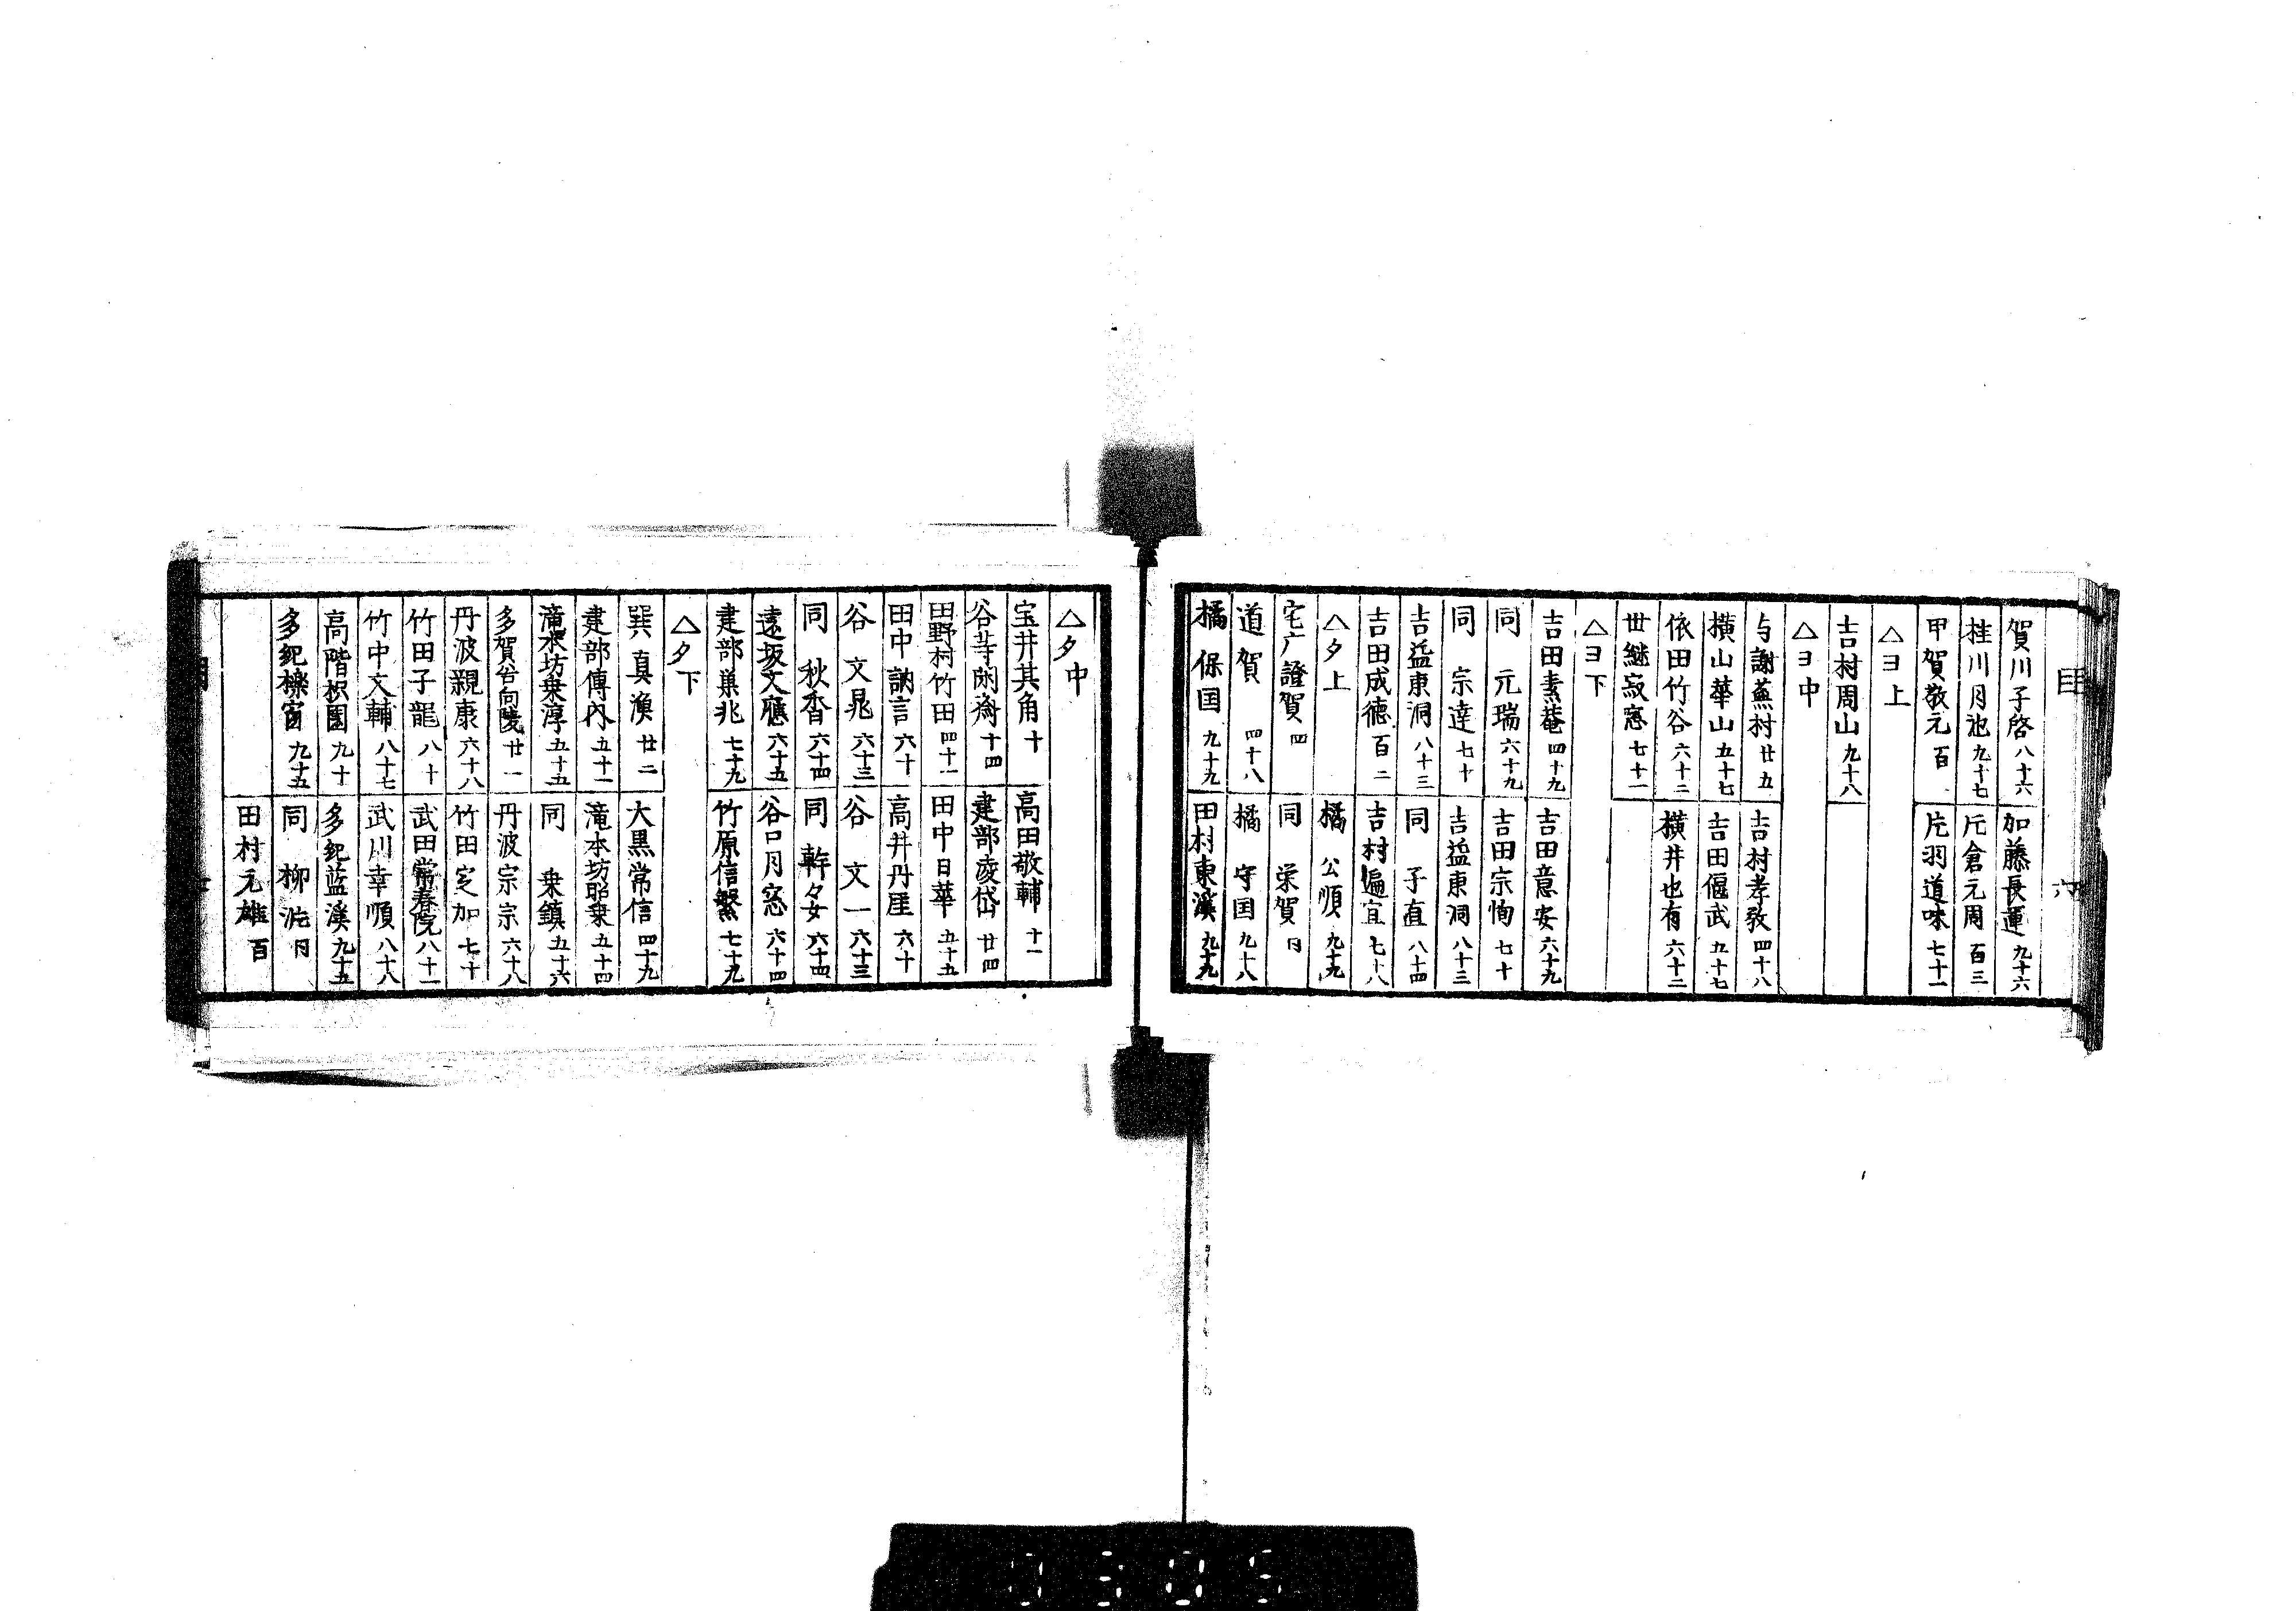 目 六
賀川子啓 八十六 加藤長運 九十六
桂川月池 九十七 片倉元周 百三
甲賀敬元 百 片羽道味 七十一
△ヨ上
吉村周山 九十八
△ヨ中
与謝蕪村 廿五 吉村孝敬 四十八
横山華山 五十七 吉田偃武 九十七
依田竹谷 六十二 横井也有 六十二
世継寂窓 七十一
△ヨ下
吉田素菴 四十九 吉田意安 六十九
同 元瑞 六十九 吉田宗恂 七十
同 宗達 七十 吉益東洞 八十三
吉益東洞 八十三 同 子直 八十四
吉田成徳 百二 吉村遍宜 七十八
△タ上 橘 公順 九十九
宅广證賀 四 同 栄賀 同
道賀 四十八 橘 守国 九十八
橘 保国 九十九 田村東溪 九十九
△タ中
宝井其角 十 高田敬輔 十一
谷 十四 建部凌岱 廿四
田野村竹田 四十一 田中日華 五十五
田中訥言 六十 高井丹厓 六十
谷 文晁 六十三 谷 文一 六十三
同 秋香 六十四 同 幹々女 六十四
遠坂文應 六十五 谷口月窓 六十四
建部巣兆 七十九 竹原信繁 七十九
△タ下
巽真漁 廿二 大黒常信 四十九
建部傳内 五十一 滝本坊昭乗 五十四
滝本坊乗淳 五十五 同 乗鎮 五十六
多賀谷向陵 廿一 丹波宗宗 六十八
丹波親康 六十八 竹田定加 七十
竹田子龍 八十 武田常春院 八十一
竹中文輔 八十七 武川幸順 八十八
高階枳園 九十 多紀藍溪 九十五
多紀櫟窗 九十五 同 柳沜 同
田村元雄 百